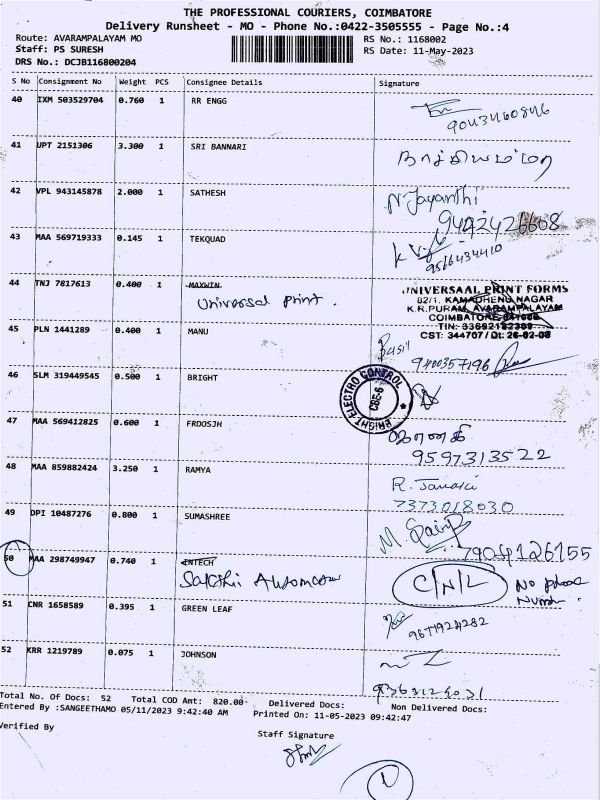 THE PROFESSIONAL COURIERS, COIMBATORE
Delivery Runsheet - MO - Phone No.:0422-3505555 - Page No.:4
Route: AVARAMPALAYAM MO
RS No.: 1168002
Staff: PS SURESH
RS Date: 11-May-2023
DRS No.: DCJB116800204
S No Consignment No Weight PCS Consignee Details Signature
40 IXM 503529704 0.760 1 RR ENGG
9043460846
41 UPT 2151306 3.300 1 SRI BANNARI
நாச்சியம்மா
42 VPL 943145878 2.000 1 SATHESH
N Jayanthi
9442426608
43 MAA 569719333 0.145 1 TEKQUAD
9566434410
44 TNJ 7817613 0.400 1 MAXWIN
Universal print.
UNIVERSAAL PRINT FORMS
82/1, KAMADHENU NAGAR
K.R.PURAM, AVARAMPALAYAM
COIMBATORE
TIN: 33692182389
CST: 344707 / Dt: 26-02-08
45 PLN 1441289 0.400 1 MANU
9400357196
46 SLM 319449545 0.500 1 BRIGHT
BRIGHT ELECTRO CONTROL
CBE-6
47 MAA 569412825 0.600 1 FRDOSJH
9597313522
48 MAA 859882424 3.250 1 RAMYA
R. Janaki
7373018030
49 DPI 10487276 0.800 1 SUMASHREE
7904126155
50 MAA 298749947 0.740 1 ENTECH
Sakthi
C/N/L
No phone
51 CNR 1658589 0.395 1 GREEN LEAF
9677924282
52 KRR 1219789 0.075 1 JOHNSON
9363129031
Total No. Of Docs: 52 Total COD Amt: 820.00 Delivered Docs: Non Delivered Docs:
Entered By :SANGEETHAMO 05/11/2023 9:42:40 AM Printed On: 11-05-2023 09:42:47
Verified By
Staff Signature